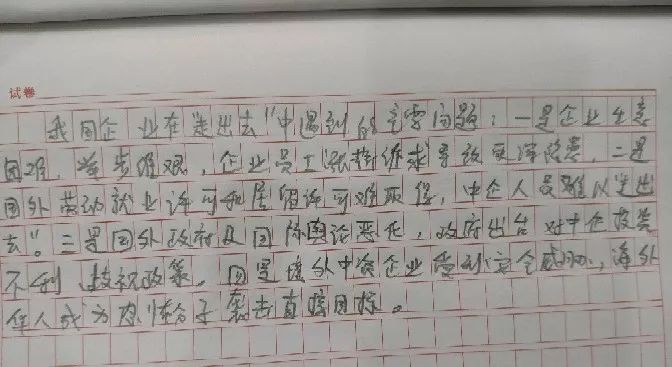 试卷
我国企业在"走出去"中遇到的主要问题:一是企业生意
困难,举步维艰,企业员工诉求导致。二是
国外劳动就业许可和居留许可难取得,中企人员难以"走出
去"。三是国外政府及国际舆论恶化,政府出台对中企投资
不利歧视政策。四是境外中资企业受到安全威胁,海外
华人成为分子袭击直接目标。